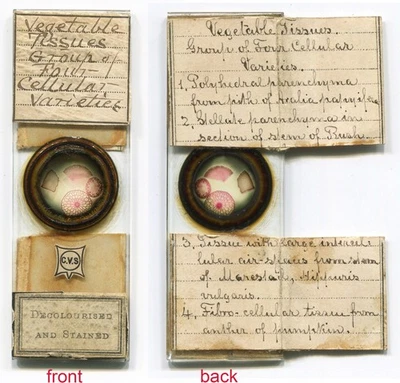 Vegetable
Tissues
Group of
Four
Cellular
Varieties
C.V.S
DECOLOURISED
AND STAINED
front
Vegetable Tissues.
Group of Four Cellular
Varieties.
1. Polyhedral parenchyma
from pith of Aralia papyifera
2. Stellate parenchyma in
section of stem of Rush.
3. Tissue with large intercel
lular air-spaces from stem
of Marestail, Hippuris
vulgaris.
4. Fibro-cellular tissue from
anther of pumpkin.
back